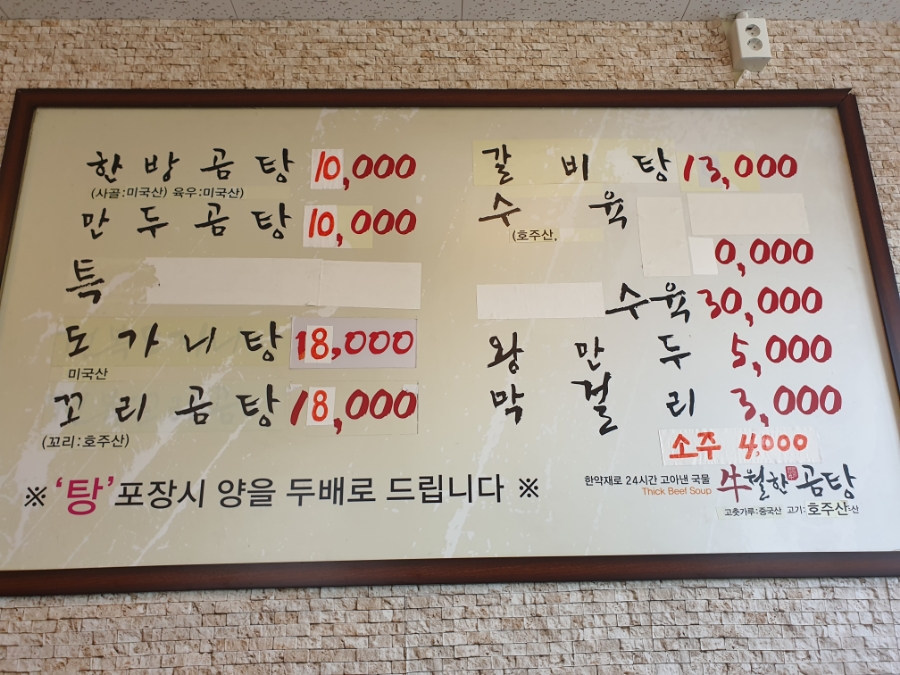 한방곰탕 10,000
(사골:미국산) 육우:미국산)
만두곰탕 10,000
특
도가니탕 18,000
미국산
꼬리곰탕 18,000
(꼬리:호주산)
갈비탕 13,000
수육
(호주산,
0,000
수육 30,000
왕만두 5,000
막걸리 3,000
소주 4,000
※ '탕' 포장시 양을 두배로 드립니다 ※
한약재로 24시간 고아낸 국물
Thick Beef Soup
牛월한 곰탕
고춧가루:중국산 고기:호주산산